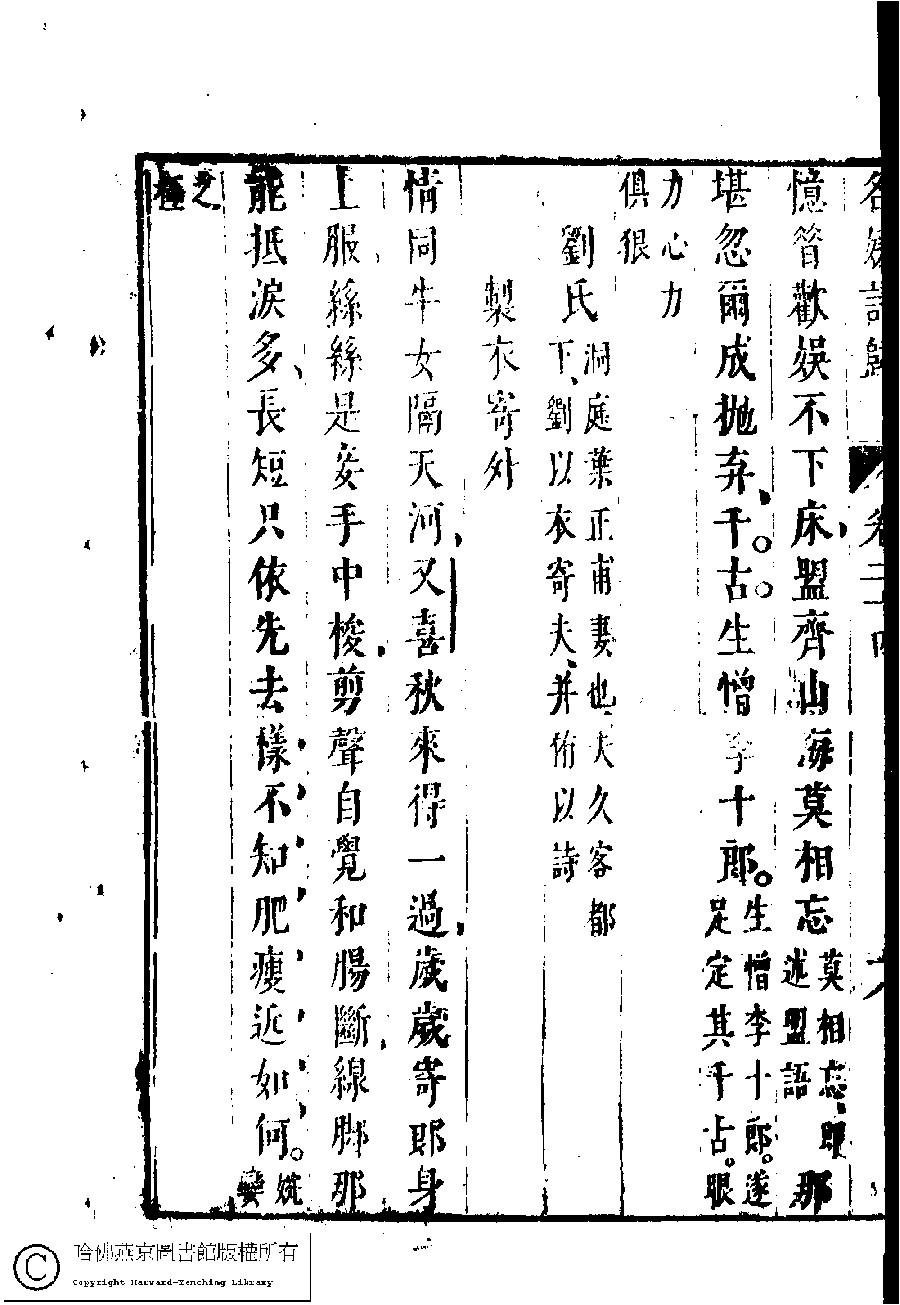 名媛詩歸 卷二十四 六
憶昔歡娛不下床盟齊山海莫相忘莫相忘即述盟語那
堪忽爾成拋弃千古生憎李十郎生憎李十郎遂足定其千古眼
力心力俱狠
劉氏洞庭葉正甫妻也夫久客都下劉以衣寄夫并侑以詩
製衣寄外
情同牛女隔天河又喜秋來得一過歲歲寄郎身
上服絲絲是妾手中梭剪聲自覺和腸斷線脚那
能抵淚多長短只依先去樣不知肥瘦近如何婉孌
之極
哈佛燕京圖書館版權所有
Copyright Harvard-Yenching Library